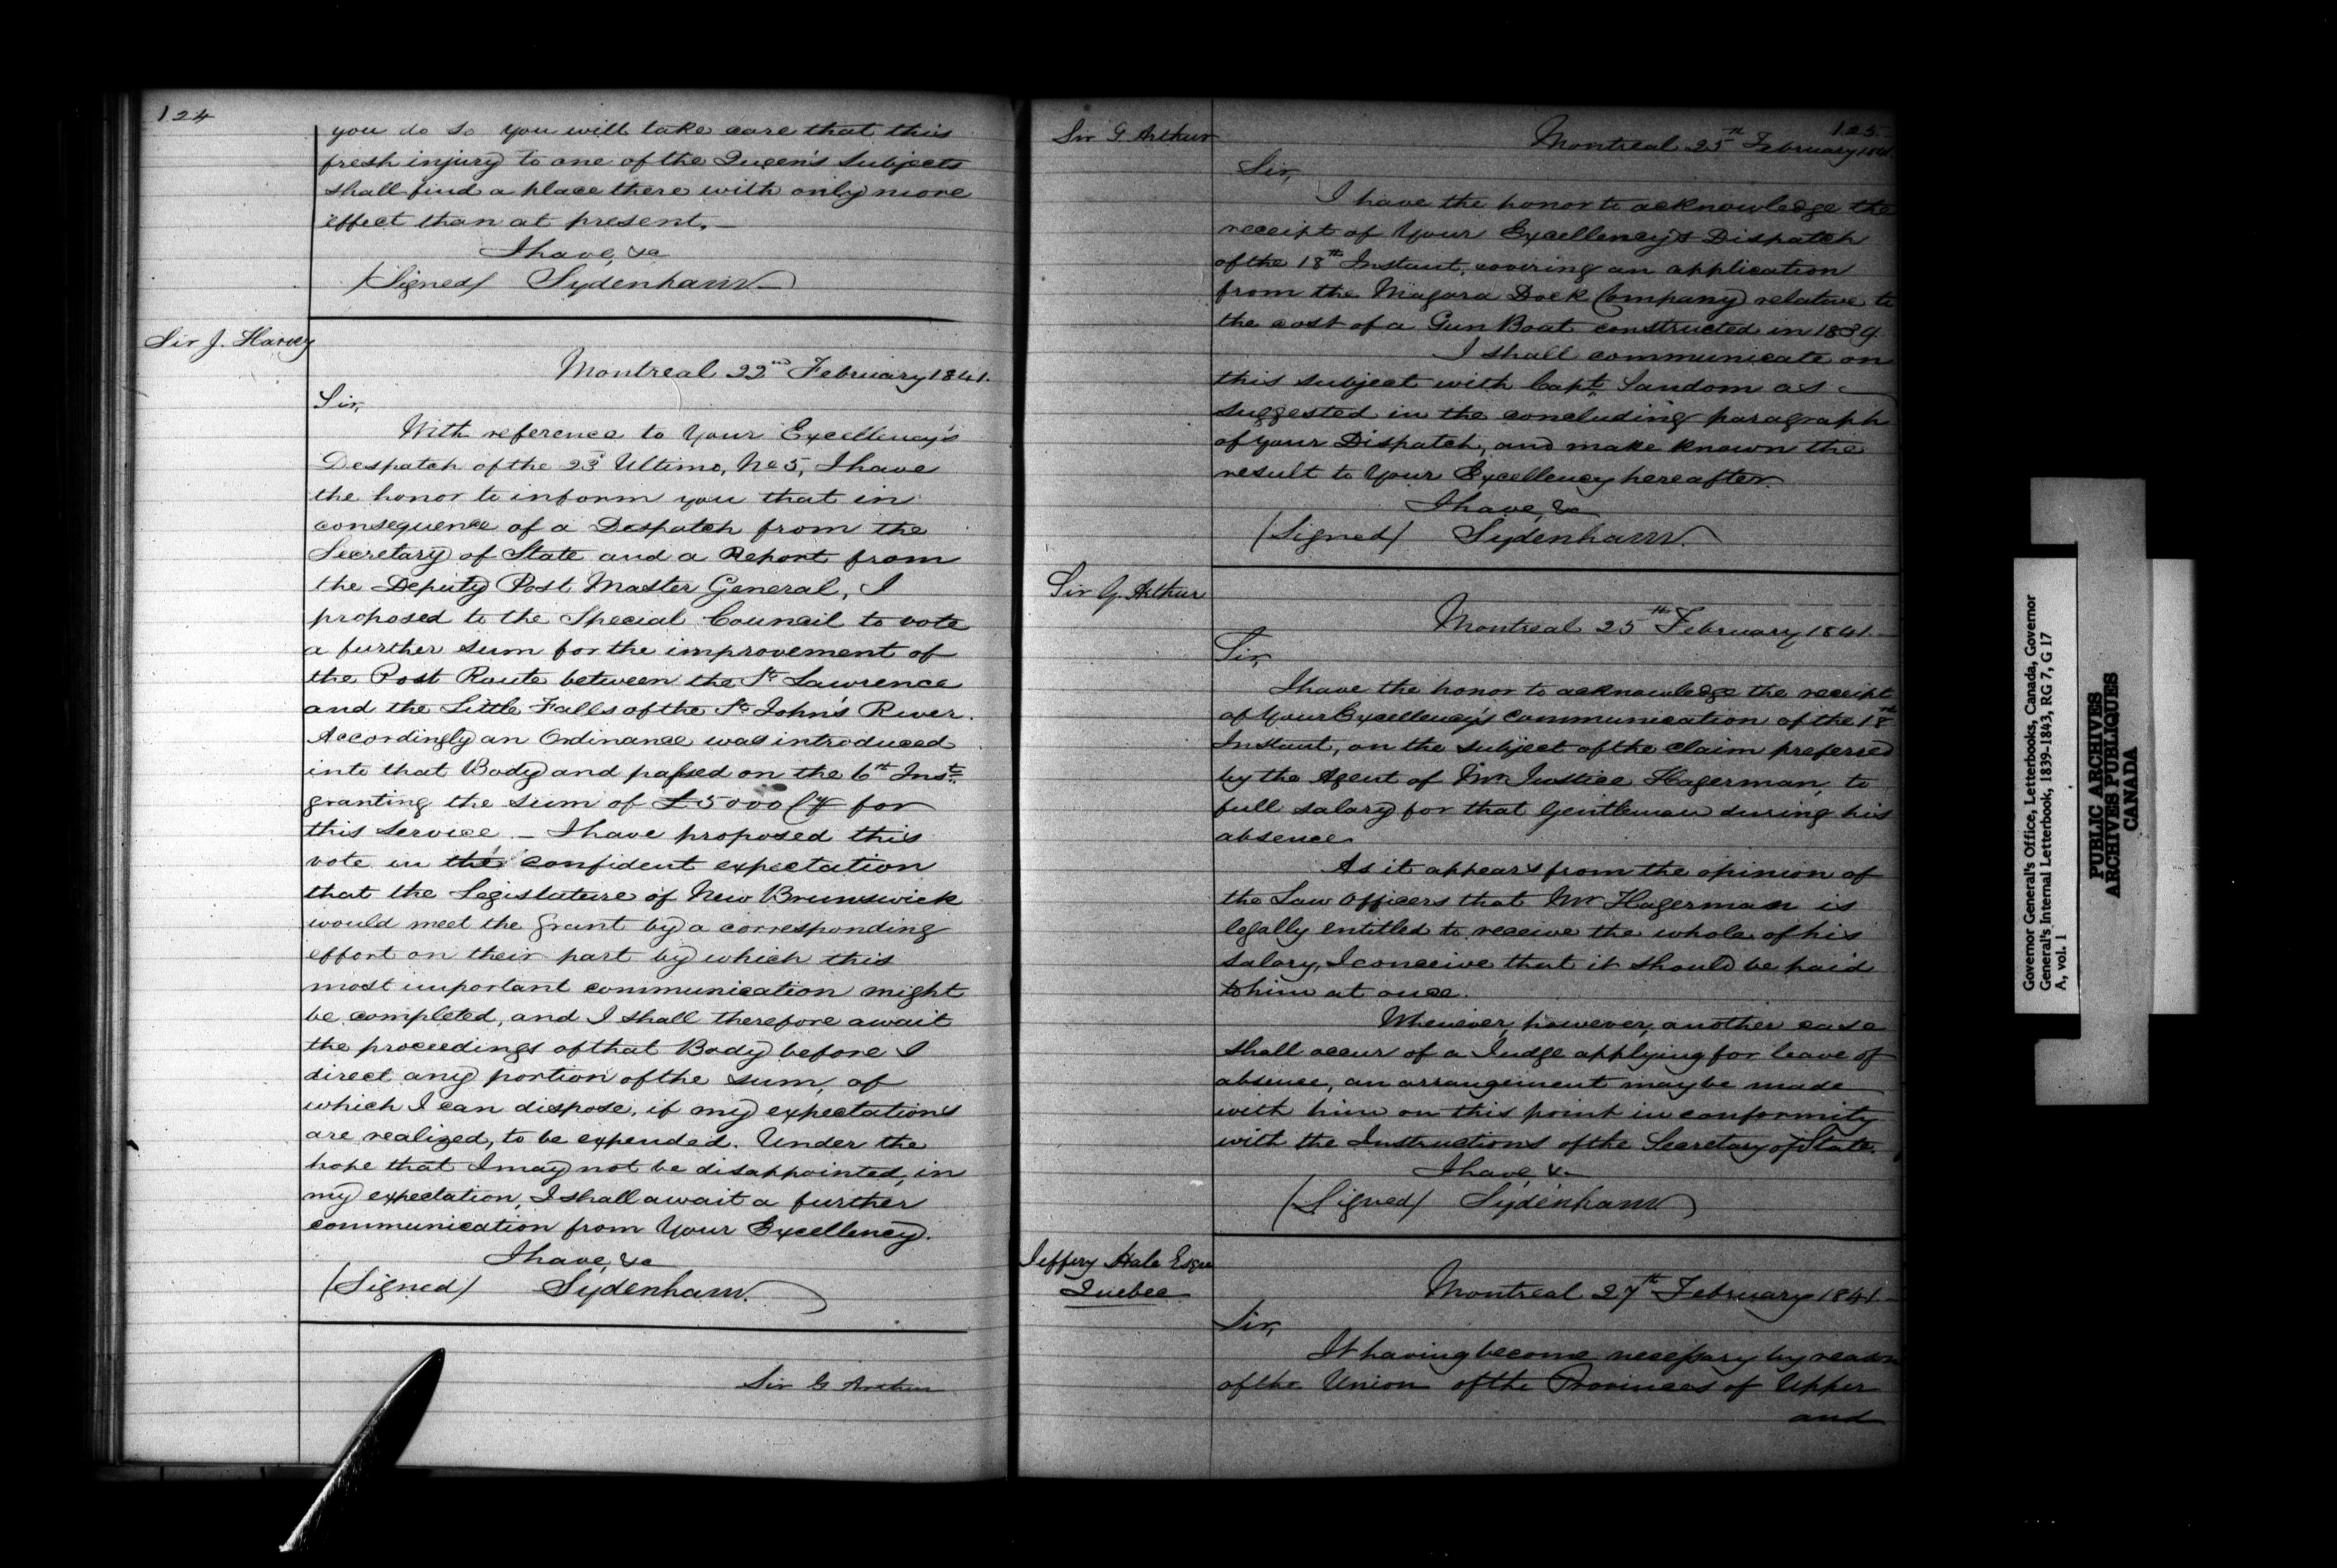 124
you do so you will take care that this
fresh injury to one of the Queen's Subjects
shall find a place there with only more
effect than at present.—
I have, &c
(Signed) Sydenham
Sir J. Harvey
Montreal 22nd February 1841.
Sir,
With reference to Your Excellency's
Despatch of the 23d Ultimo, No 5, I have
the honor to inform you that in
consequence of a Despatch from the
Secretary of State and a Report from
the Deputy Post Master General, I
proposed to the Special Council to vote
a further sum for the improvement of
the Post Route between the St. Lawrence
and the Little Falls of the St. John's River.
Accordingly an Ordinance was introduced
into that Body and passed on the 6th Inst.
granting the sum of £5000 Cy for
this service. — I have proposed this
vote in the confident expectation
that the Legislature of New Brunswick
would meet the grant by a corresponding
effort on their part by which this
most important communication might
be completed, and I shall therefore await
the proceedings of that Body before I
direct any portion of the sum, of
which I can dispose, if my expectations
are realized, to be expended. Under the
hope that I may not be disappointed, in
my expectation, I shall await a further
communication from Your Excellency.
I have, &c
(Signed) Sydenham.
Sir G Arthur
125.
Sir G. Arthur
Montreal 25th February 1841
Sir,
I have the honor to acknowledge the
receipt of Your Excellency's Dispatch
of the 18th Instant, covering an application
from the Niagara Dock Company relative to
the cost of a Gun Boat constructed in 1839.
I shall communicate on
this subject with Capt. Sandom as
suggested in the concluding paragraph
of your Dispatch, and make known the
result to Your Excellency hereafter.
I have, &c
(Signed) Sydenham.
Sir G. Arthur
Montreal 25th February 1841.—
Sir,
I have the honor to acknowledge the receipt
of Your Excellency's communication of the 18th
Instant, on the subject of the claim preferred
by the Agent of Mr Justice Hagerman, to
full salary for that Gentleman during his
absence.
As it appears from the opinion of
the Law Officers that Mr Hagerman is
legally entitled to receive the whole of his
salary, I conceive that it should be paid
to him at once.
Whenever, however, another case
shall occur of a Judge applying for leave of
absence, an arrangement may be made
with him on this point in conformity
with the Instructions of the Secretary of State.
I have, &c
(Signed) Sydenham
Jeffery Hale Esqre
Quebec
Montreal 27th February 1841.—
Sir,
It having become necessary by reason
of the Union of the Provinces of Upper
and
Governor General's Office, Letterbooks, Canada, Governor
General's Internal Letterbook, 1839-1843, RG 7, G 17
A, vol. 1
PUBLIC ARCHIVES
ARCHIVES PUBLIQUES
CANADA